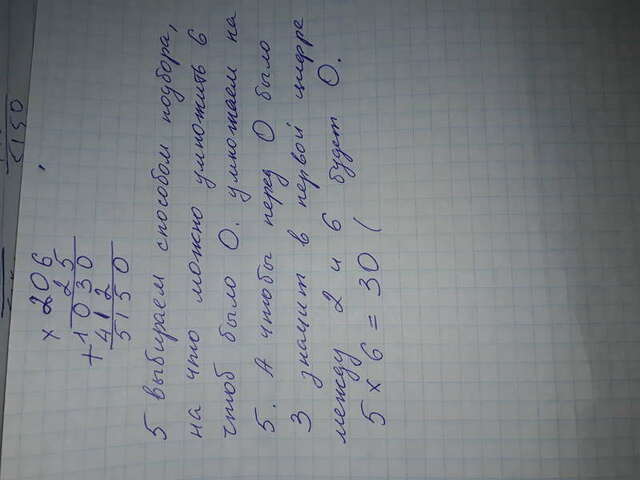 5150
× 206
25
+ 1030
412
5150
5 выбираем способом подбора,
на что можно умножить 6
чтоб было 0. умножаем на
5. А чтобы перед 0 было
3 значит в первой цифре
между 2 и 6 будет 0.
5 × 6 = 30 (